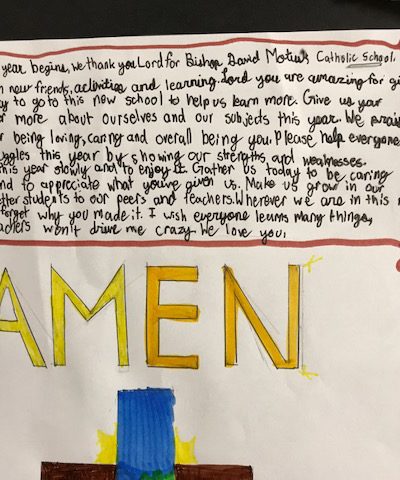 year begins, we thank you Lord for Bishop David Motiuk Catholic School.
new friends, activities and learning. Lord you are amazing for
to go to this new school to help us learn more. Give us your
more about ourselves and our subjects this year. We
being loving, caring and overall being you. Please help everyone
this year by showing our strengths and weaknesses.
this year slowly and to enjoy it. Gather us today to be caring
to appreciate what you've given us. Make us grow in our
students to our peers and teachers. Wherever we are in this
forget why you made it. I wish everyone learns many things,
won't drive me crazy. We love you,
AMEN